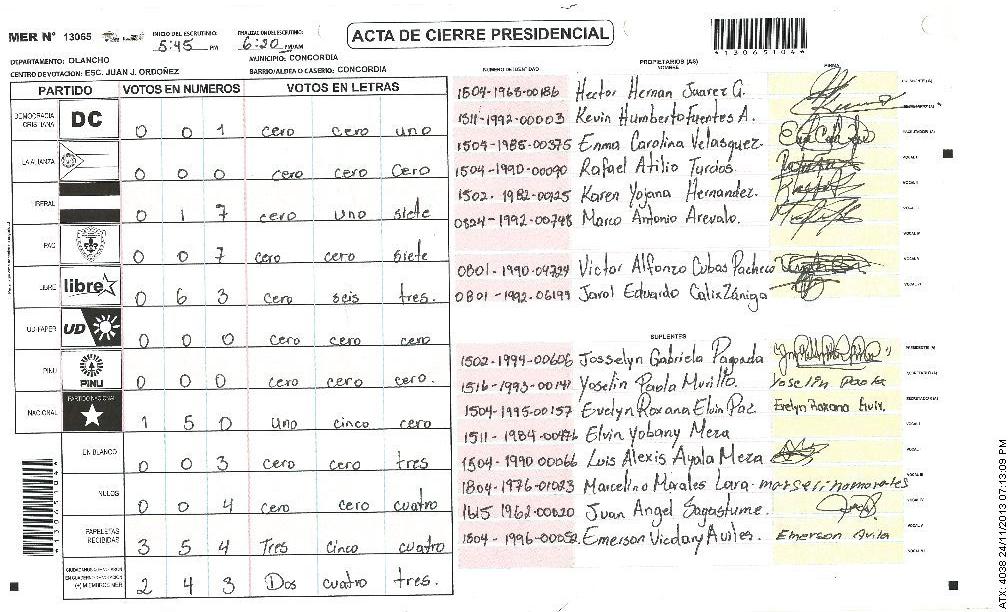 MER N° 13065
INICIO DEL ESCRUTINIO: 5:45 PM
FINALIZACION DEL ESCRUTINIO: 6:20 PM/AM
ACTA DE CIERRE PRESIDENCIAL
13065104
DEPARTAMENTO: OLANCHO
MUNICIPIO: CONCORDIA
CENTRO DE VOTACION: ESC. JUAN J. ORDOÑEZ
BARRIO/ALDEA O CASERIO: CONCORDIA
PARTIDO VOTOS EN NUMEROS VOTOS EN LETRAS
DEMOCRACIA CRISTIANA DC 0 0 1 cero cero uno
LA ALIANZA 0 0 0 cero cero cero
LIBERAL 0 1 7 cero uno siete
PAC 0 0 7 cero cero siete
LIBRE libre 0 6 3 cero seis tres.
UD-FAPER UD 0 0 0 cero cero cero
PINU PINU 0 0 0 cero cero cero.
NACIONAL PARTIDO NACIONAL 1 5 0 uno cinco cero
EN BLANCO 0 0 3 cero cero tres
NULOS 0 0 4 cero cero cuatro
PAPELETAS RECIBIDAS 3 5 4 Tres cinco cuatro
(+) MIEMBROS MER 2 4 3 Dos cuatro tres.
NUMERO DE IDENTIDAD PROPIETARIOS (AS) NOMBRE FIRMA
1504-1968-00186 Hector Hernan Juarez G.
1511-1992-00003 Kevin Humberto Fuentes A.
1504-1985-00375 Enma Carolina Velasquez.
1504-1990-00090 Rafael Atilio Turcios
1502-1982-00125 Karen Yojana Hernandez.
0824-1992-00748 Marco Antonio Arevalo.
0801-1990-04724 Victor Alfonzo Cubas Pacheco
0801-1992-06199 Jarol Eduardo Calix Zúniga
SUPLENTES
1502-1994-00606 Josselyn Gabriela Pagoada
1516-1993-00141 Yoselin Paola Murillo. Yoselin Paola
1504-1995-00157 Evelyn Roxana Elvin Paz Evelyn Roxana
1511-1984-00476 Elvin Yobany Meza
1504-1990 00066 Luis Alexis Ayala Meza
1804-1976-01023 Marcelino Morales Lara. marselinomorales
1615 1962-00020 Juan Angel Sagastume.
1504-1996-00052 Emerson Vicdany Aviles. Emerson Avila
ATX: 4038 24/11/2013 07:13:09 PM